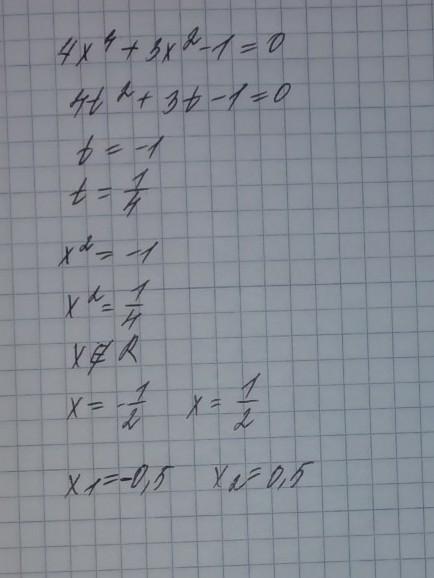 4x⁴ + 3x² - 1 = 0
4t² + 3t - 1 = 0
t = -1
t = 1/4
x² = -1
x² = 1/4
x ∉ R
x = -1/2 x = 1/2
x₁ = -0,5 x₂ = 0,5